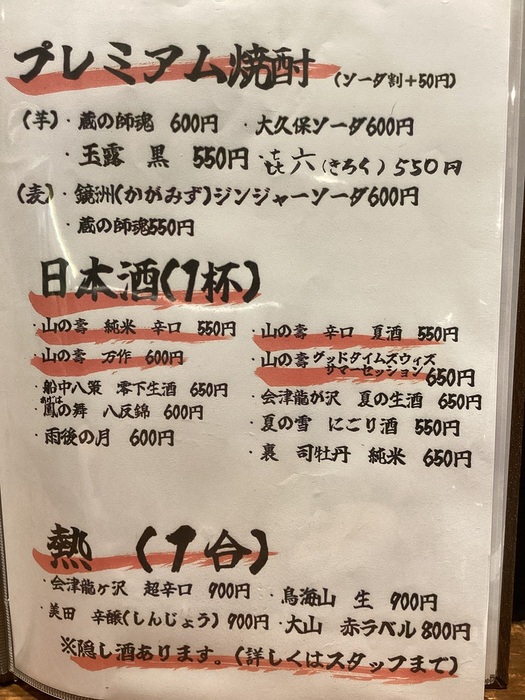 プレミアム焼酎 (ソーダ割+50円)
(芋)・蔵の師魂 600円 ・大久保ソーダ600円
・玉露 黒 550円 ・㐂六(きろく)550円
(麦)・鏡洲(かがみず)ジンジャーソーダ600円
・蔵の師魂550円
日本酒(1杯)
・山の壽 純米 辛口 550円
・山の壽 万作 600円
・船中八策 零下生酒 650円
・鳳の舞 八反錦 600円
・雨後の月 600円
・山の壽 辛口 夏酒 550円
・山の壽 グッドタイムズウィズ
サマーセッション 650円
・会津龍が沢 夏の生酒 650円
・夏の雪 にごり酒 550円
・裏 司牡丹 純米 650円
熱 (1合)
・会津龍ヶ沢 超辛口 900円 ・鳥海山 生 900円
・美田 辛醸(しんじょう)900円 ・大山 赤ラベル800円
※隠し酒あります。(詳しくはスタッフまで)